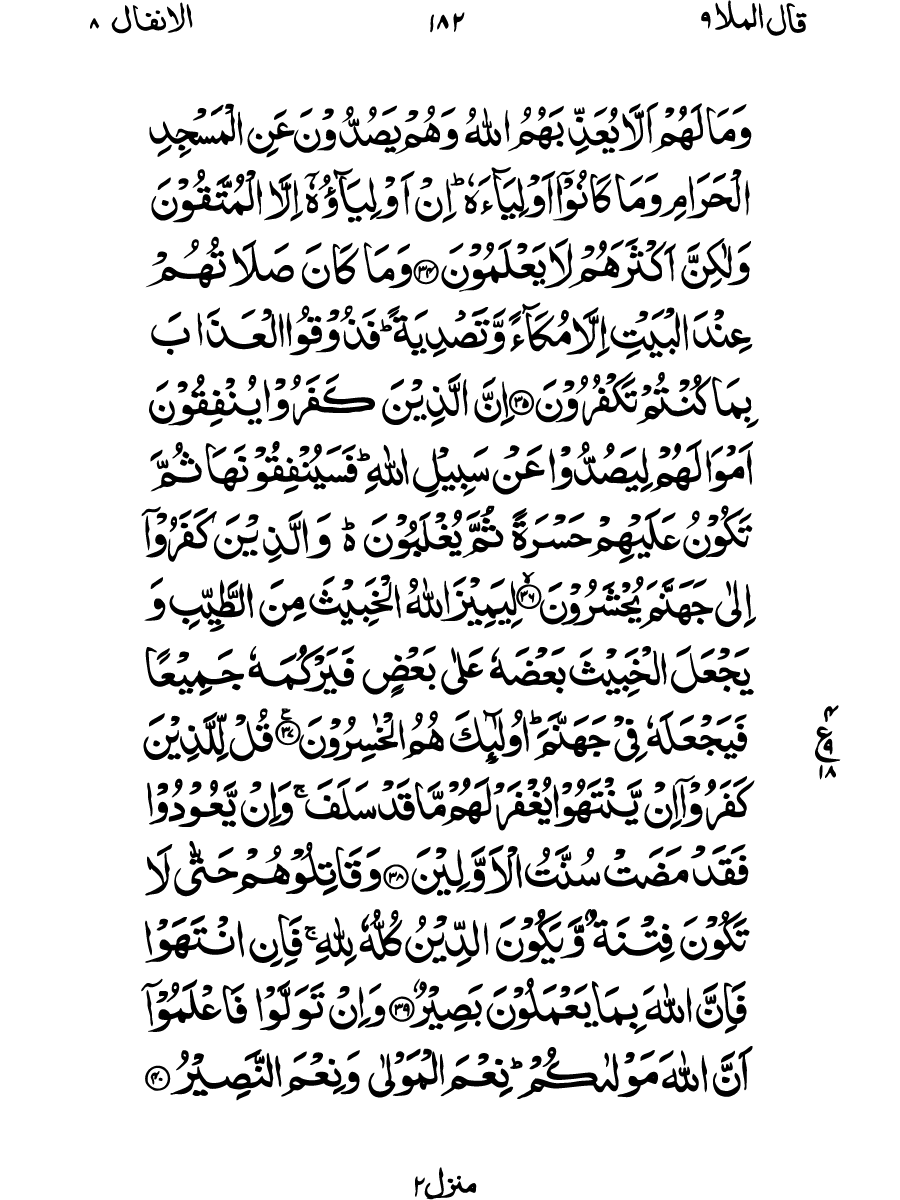 قال الملا ۹ ۱۸۲ الانفال ۸
وَمَا لَهُمْ اَلَّا يُعَذِّبَهُمُ اللّٰهُ وَهُمْ يَصُدُّوْنَ عَنِ الْمَسْجِدِ
الْحَرَامِ وَمَا كَانُوْۤا اَوْلِيَآءَهٗ ؕ اِنْ اَوْلِيَآؤُهٗۤ اِلَّا الْمُتَّقُوْنَ
وَلٰكِنَّ اَكْثَرَهُمْ لَا يَعْلَمُوْنَ ۝۳۴ وَمَا كَانَ صَلَاتُهُمْ
عِنْدَ الْبَيْتِ اِلَّا مُكَآءً وَّتَصْدِيَةً ؕ فَذُوْقُوا الْعَذَابَ
بِمَا كُنْتُمْ تَكْفُرُوْنَ ۝۳۵ اِنَّ الَّذِيْنَ كَفَرُوْا يُنْفِقُوْنَ
اَمْوَالَهُمْ لِيَصُدُّوْا عَنْ سَبِيْلِ اللّٰهِ ؕ فَسَيُنْفِقُوْنَهَا ثُمَّ
تَكُوْنُ عَلَيْهِمْ حَسْرَةً ثُمَّ يُغْلَبُوْنَ ۬ؕ وَالَّذِيْنَ كَفَرُوْۤا
اِلٰى جَهَنَّمَ يُحْشَرُوْنَ ۝۳۶ۙ لِيَمِيْزَ اللّٰهُ الْخَبِيْثَ مِنَ الطَّيِّبِ وَ
يَجْعَلَ الْخَبِيْثَ بَعْضَهٗ عَلٰى بَعْضٍ فَيَرْكُمَهٗ جَمِيْعًا
فَيَجْعَلَهٗ فِيْ جَهَنَّمَ ؕ اُولٰٓئِكَ هُمُ الْخٰسِرُوْنَ ۝۳۷ع قُلْ لِّلَّذِيْنَ
۴ ع ۹ ۱۸
كَفَرُوْۤا اِنْ يَّنْتَهُوْا يُغْفَرْ لَهُمْ مَّا قَدْ سَلَفَ ۚ وَاِنْ يَّعُوْدُوْا
فَقَدْ مَضَتْ سُنَّتُ الْاَوَّلِيْنَ ۝۳۸ وَقَاتِلُوْهُمْ حَتّٰى لَا
تَكُوْنَ فِتْنَةٌ وَّيَكُوْنَ الدِّيْنُ كُلُّهٗ لِلّٰهِ ۚ فَاِنِ انْتَهَوْا
فَاِنَّ اللّٰهَ بِمَا يَعْمَلُوْنَ بَصِيْرٌ ۝۳۹ وَاِنْ تَوَلَّوْا فَاعْلَمُوْۤا
اَنَّ اللّٰهَ مَوْلٰىكُمْ ؕ نِعْمَ الْمَوْلٰى وَنِعْمَ النَّصِيْرُ ۝۴۰
منزل ۲